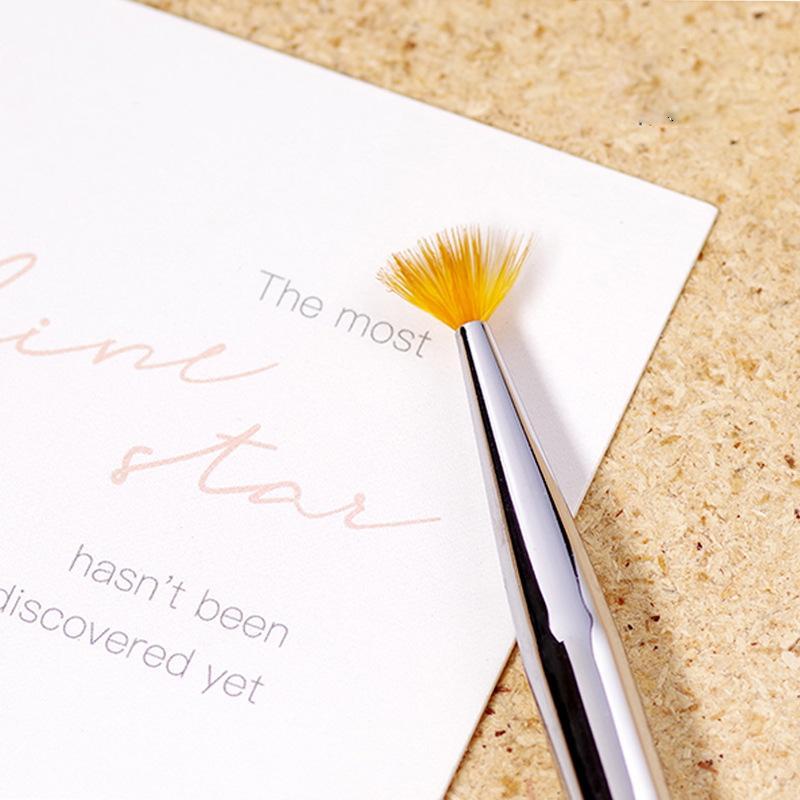 The most
star
hasn't been
discovered yet